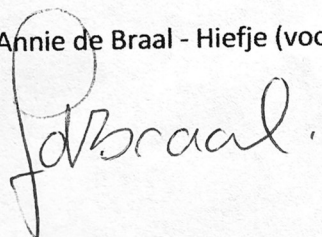 Annie de Braal - Hiefje (voo
JdBraal.